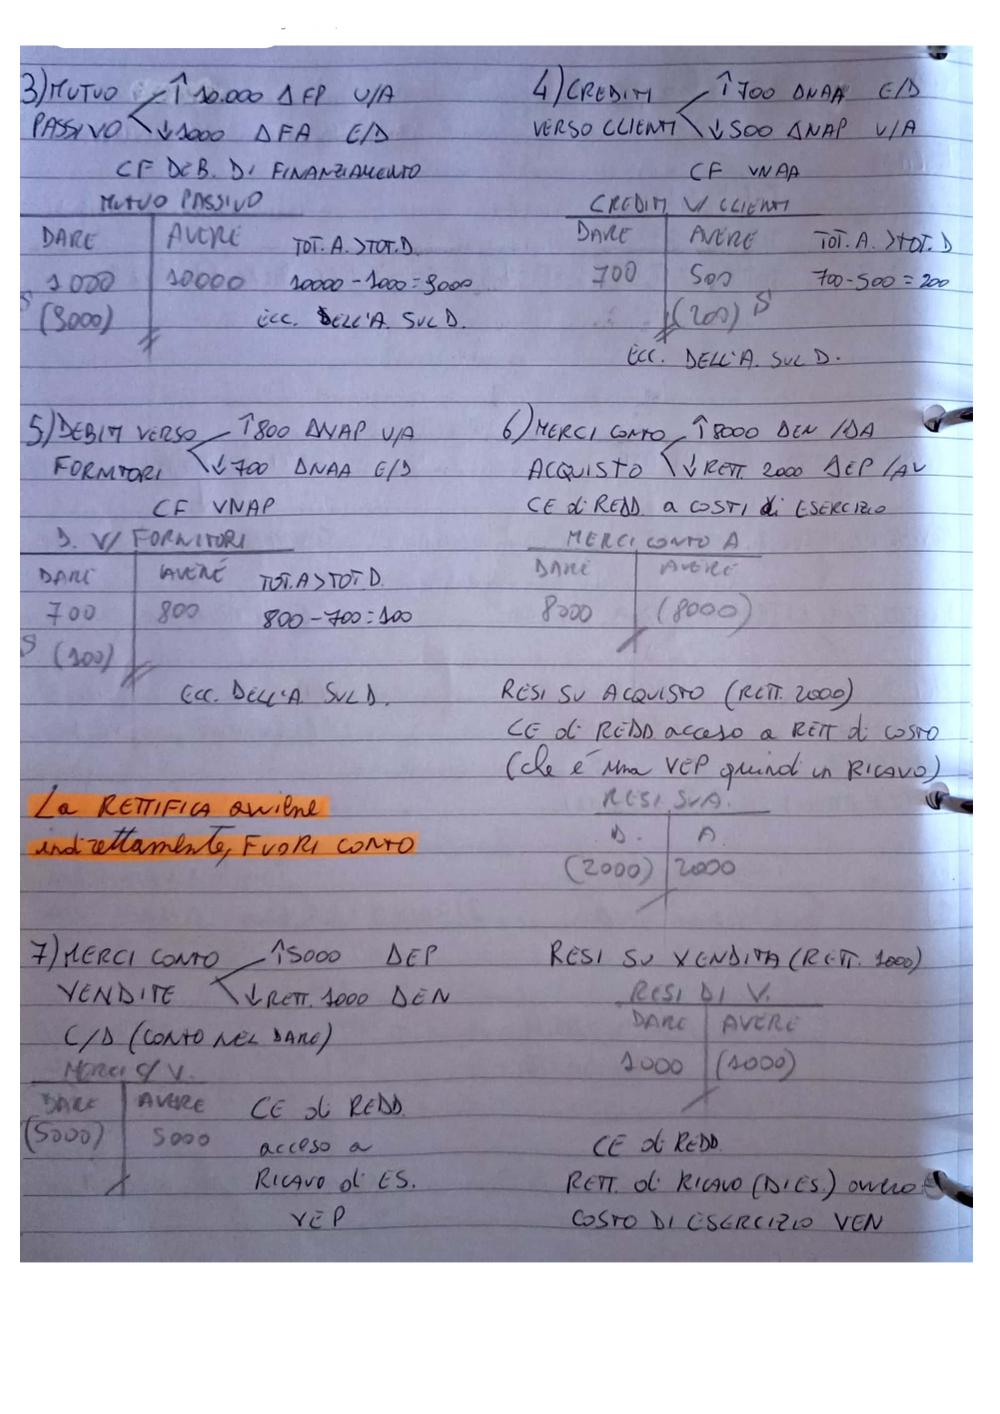 3) MUTUO ↑ 10.000 Δ EP V/A
PASSIVO ↓ 1000 Δ FA E/D
CF DEB. DI FINANZIAMENTO
MUTUO PASSIVO
DARE AVERE TOT. A. > TOT. D.
1000 10000 10000 - 1000 = 9000
S (9000) ECC. DELL'A. SUL D.
4) CREDITI ↑ 700 ΔNAA E/D
VERSO CLIENTI ↓ 500 ΔNAP V/A
CF VNAA
CREDITI V/ CLIENTI
DARE AVERE TOT. A. > TOT. D
700 500 700-500 = 200
(200) S
ECC. DELL'A. SUL D.
5) DEBITI VERSO ↑ 800 ΔNAP V/A
FORNITORI ↓ 700 ΔNAA E/D
CF VNAP
D. V/ FORNITORI
DARE AVERE TOT. A > TOT D.
700 800 800 - 700 = 100
S (100)
ECC. DELL'A. SUL D.
6) MERCI CONTO ↑ 8000 ΔEN /DA
ACQUISTO ↓ RETT. 2000 ΔEP /AV
CE di REDD. a COSTI di ESERCIZIO
MERCI CONTO A
DARE AVERE
8000 (8000)
RESI SU ACQUISTO (RETT. 2000)
CE di REDD acceso a RETT di COSTO
(che é una VEP quindi un RICAVO)
RESI SU A.
D. A.
(2000) 2000
La RETTIFICA avviene
indirettamente, FUORI CONTO
7) MERCI CONTO ↑ 5000 ΔEP
VENDITE ↓ RETT. 1000 ΔEN
C/D (CONTO NEL DARE)
MERCI C/ V.
DARE AVERE CE di REDD.
(5000) 5000 acceso a
RICAVO di ES.
VEP
RESI SU VENDITA (RETT. 1000)
RESI DI V.
DARE AVERE
1000 (1000)
CE di REDD.
RETT. di RICAVO (DI ES.) ovvero
COSTO DI ESERCIZIO VEN